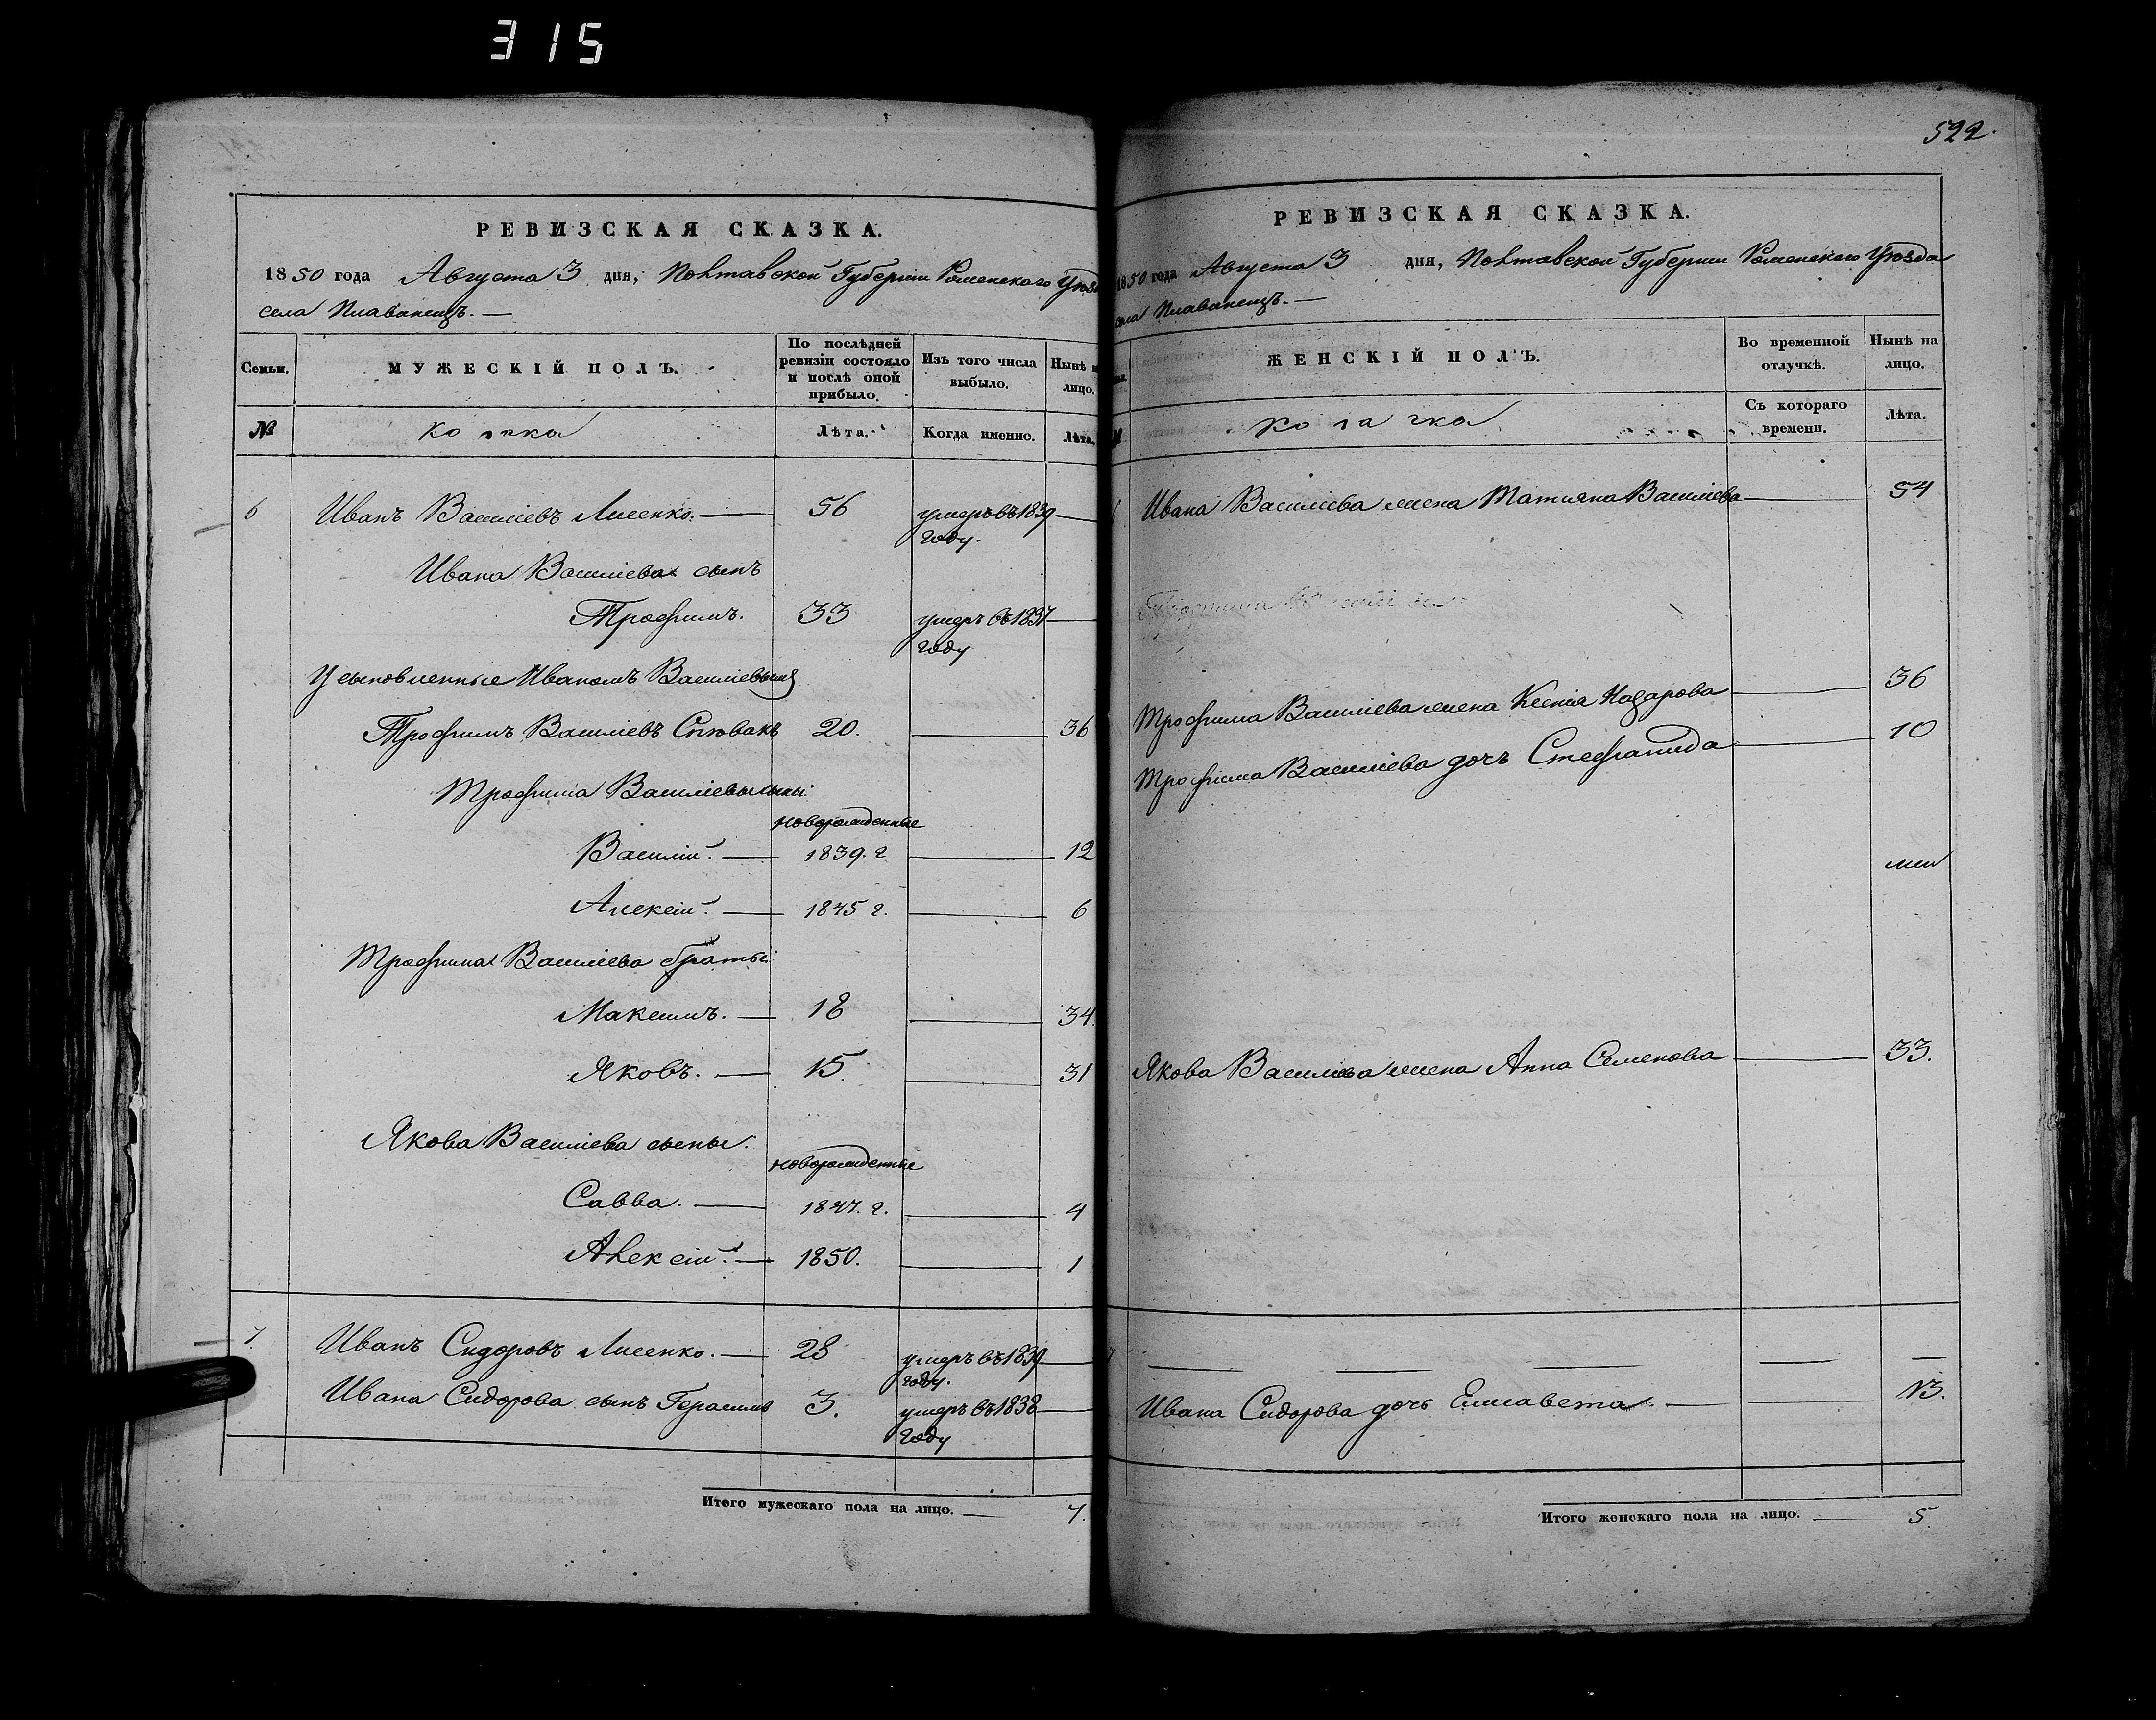 315
РЕВИЗСКАЯ СКАЗКА.
1850 года Августа 3 дня, Полтавской Губерніи Роменского Уѣзда
села Плаванецъ. —
Семьи.
МУЖЕСКІЙ ПОЛЪ.
По послѣдней ревизіи состояло и послѣ оной прибыло.
Изъ того числа выбыло.
Нынѣ на лицо.
№
Лѣта.
Когда именно.
Лѣта.
6 Иванъ Василіевъ Лисенко. — 56 умеръ въ 1839 —
году.
Ивана Василіева сынъ
Трофимъ. 33 умеръ въ 1837 —
году
Усыновленные Иваномъ Василіевымъ
Трофимъ Василіевъ Спѣвакъ 20. — 36
Трофима Василіева сыны:
новорожденные
Василій. — 1839. г. — 12
Алексій. — 1845 г. — 6
Трофима Василіева братья
Максимъ. — 18 — 34.
Яковъ. — 15. — 31
Якова Василіева сыны:
новорожденные
Савва. — 1847. г. — 4
Алексій. — 1850. — 1
7 Иванъ Сидоровъ Лисенко. — 28 умеръ въ 1839 —
году.
Ивана Сидорова сынъ Герасимъ 3. умеръ въ 1838 —
году
Итого мужескаго пола на лицо. — 7.
522.
РЕВИЗСКАЯ СКАЗКА.
1850 года Августа 3 дня, Полтавской Губерніи Роменскаго Уѣзда
села Плаванецъ. —
ЖЕНСКІЙ ПОЛЪ.
Во временной отлучкѣ.
Нынѣ на лицо.
Съ котораго времени.
Лѣта.
Ивана Василіева жена Татияна Василіева — 54
Трофима Василіева жена Ксенія Назарова — 36
Трофима Василіева дочь Стефанида — 10
Якова Василіева жена Анна Семенова — 33.
— — — — —
Ивана Сидорова дочь Елисавета. — — 13.
Итого женскаго пола на лицо. — 5